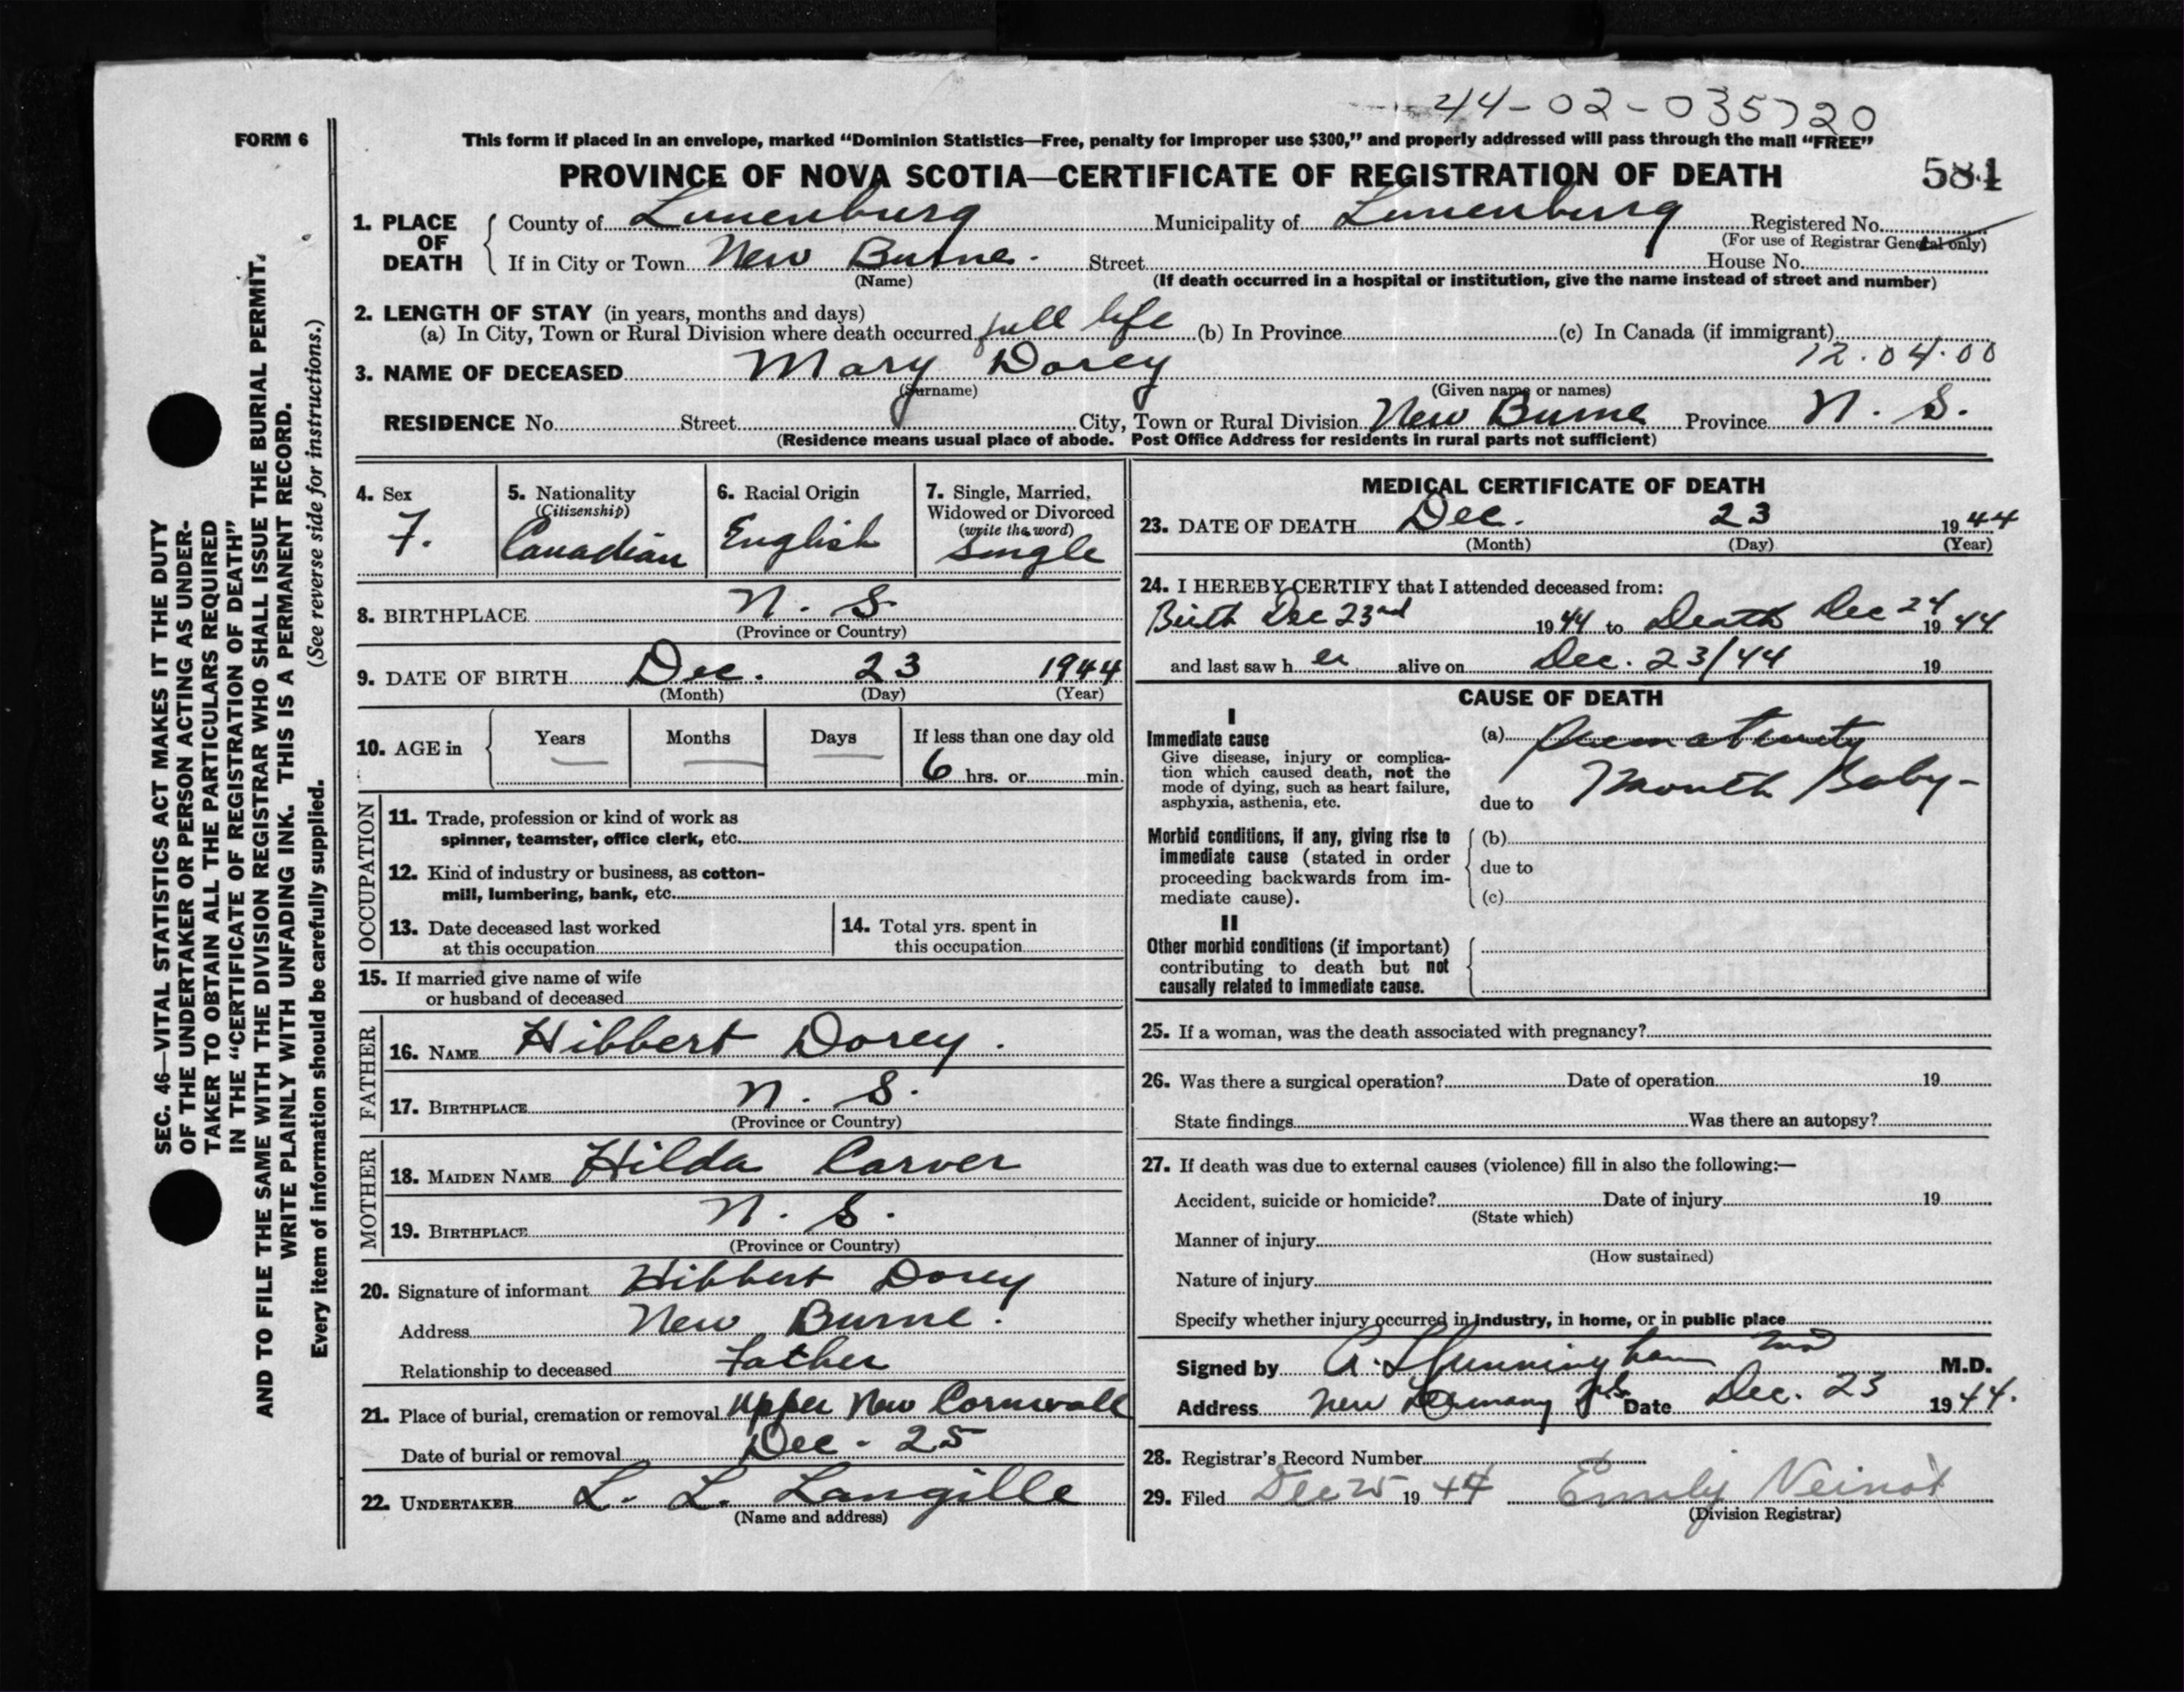 44-02-035720
FORM 6
This form if placed in an envelope, marked “Dominion Statistics—Free, penalty for improper use $300,” and properly addressed will pass through the mail “FREE”
PROVINCE OF NOVA SCOTIA—CERTIFICATE OF REGISTRATION OF DEATH
584
1. PLACE OF DEATH
County of Lunenburg Municipality of Lunenburg Registered No.
(For use of Registrar General only)
If in City or Town New Burne. Street House No.
(Name) (If death occurred in a hospital or institution, give the name instead of street and number)
2. LENGTH OF STAY (in years, months and days)
(a) In City, Town or Rural Division where death occurred full life (b) In Province (c) In Canada (if immigrant)
12.04.00
3. NAME OF DECEASED Mary Dorey
(Surname) (Given name or names)
RESIDENCE No. Street City, Town or Rural Division New Burne Province N. S.
(Residence means usual place of abode. Post Office Address for residents in rural parts not sufficient)
4. Sex
F.
5. Nationality
(Citizenship)
Canadian
6. Racial Origin
English
7. Single, Married, Widowed or Divorced
(write the word)
Single
8. BIRTHPLACE N. S.
(Province or Country)
9. DATE OF BIRTH Dec. 23 1944
(Month) (Day) (Year)
10. AGE in Years Months Days If less than one day old
— — — 6 hrs. or min.
OCCUPATION
11. Trade, profession or kind of work as
spinner, teamster, office clerk, etc.
12. Kind of industry or business, as cotton-
mill, lumbering, bank, etc.
13. Date deceased last worked
at this occupation
14. Total yrs. spent in
this occupation
15. If married give name of wife
or husband of deceased
FATHER
16. NAME Hibbert Dorey.
17. BIRTHPLACE N. S.
(Province or Country)
MOTHER
18. MAIDEN NAME Hilda Carver
19. BIRTHPLACE N. S.
(Province or Country)
20. Signature of informant Hibbert Dorey
Address New Burne.
Relationship to deceased Father
21. Place of burial, cremation or removal Upper New Cornwall
Date of burial or removal Dec - 25
22. UNDERTAKER L. L. Langille
(Name and address)
MEDICAL CERTIFICATE OF DEATH
23. DATE OF DEATH Dec. 23 1944
(Month) (Day) (Year)
24. I HEREBY CERTIFY that I attended deceased from:
Birth Dec 23rd 1944 to Death Dec 24 1944
and last saw h er alive on Dec. 23/44 19
CAUSE OF DEATH
I
Immediate cause
Give disease, injury or complica-
tion which caused death, not the
mode of dying, such as heart failure,
asphyxia, asthenia, etc.
(a) Prematurity
due to Month Baby-
Morbid conditions, if any, giving rise to
immediate cause (stated in order
proceeding backwards from im-
mediate cause).
(b)
due to
(c)
II
Other morbid conditions (if important)
contributing to death but not
causally related to immediate cause.
25. If a woman, was the death associated with pregnancy?
26. Was there a surgical operation? Date of operation 19
State findings Was there an autopsy?
27. If death was due to external causes (violence) fill in also the following:—
Accident, suicide or homicide? Date of injury 19
(State which)
Manner of injury
(How sustained)
Nature of injury
Specify whether injury occurred in industry, in home, or in public place
Signed by MD M.D.
Address New Germany N.S. Date Dec. 23 1944.
28. Registrar's Record Number
29. Filed Dec 25 1944 Emily Veinot
(Division Registrar)
SEC. 46—VITAL STATISTICS ACT MAKES IT THE DUTY
OF THE UNDERTAKER OR PERSON ACTING AS UNDER-
TAKER TO OBTAIN ALL THE PARTICULARS REQUIRED
IN THE “CERTIFICATE OF REGISTRATION OF DEATH”
AND TO FILE THE SAME WITH THE DIVISION REGISTRAR WHO SHALL ISSUE THE BURIAL PERMIT.
WRITE PLAINLY WITH UNFADING INK. THIS IS A PERMANENT RECORD.
Every item of information should be carefully supplied. (See reverse side for instructions.)